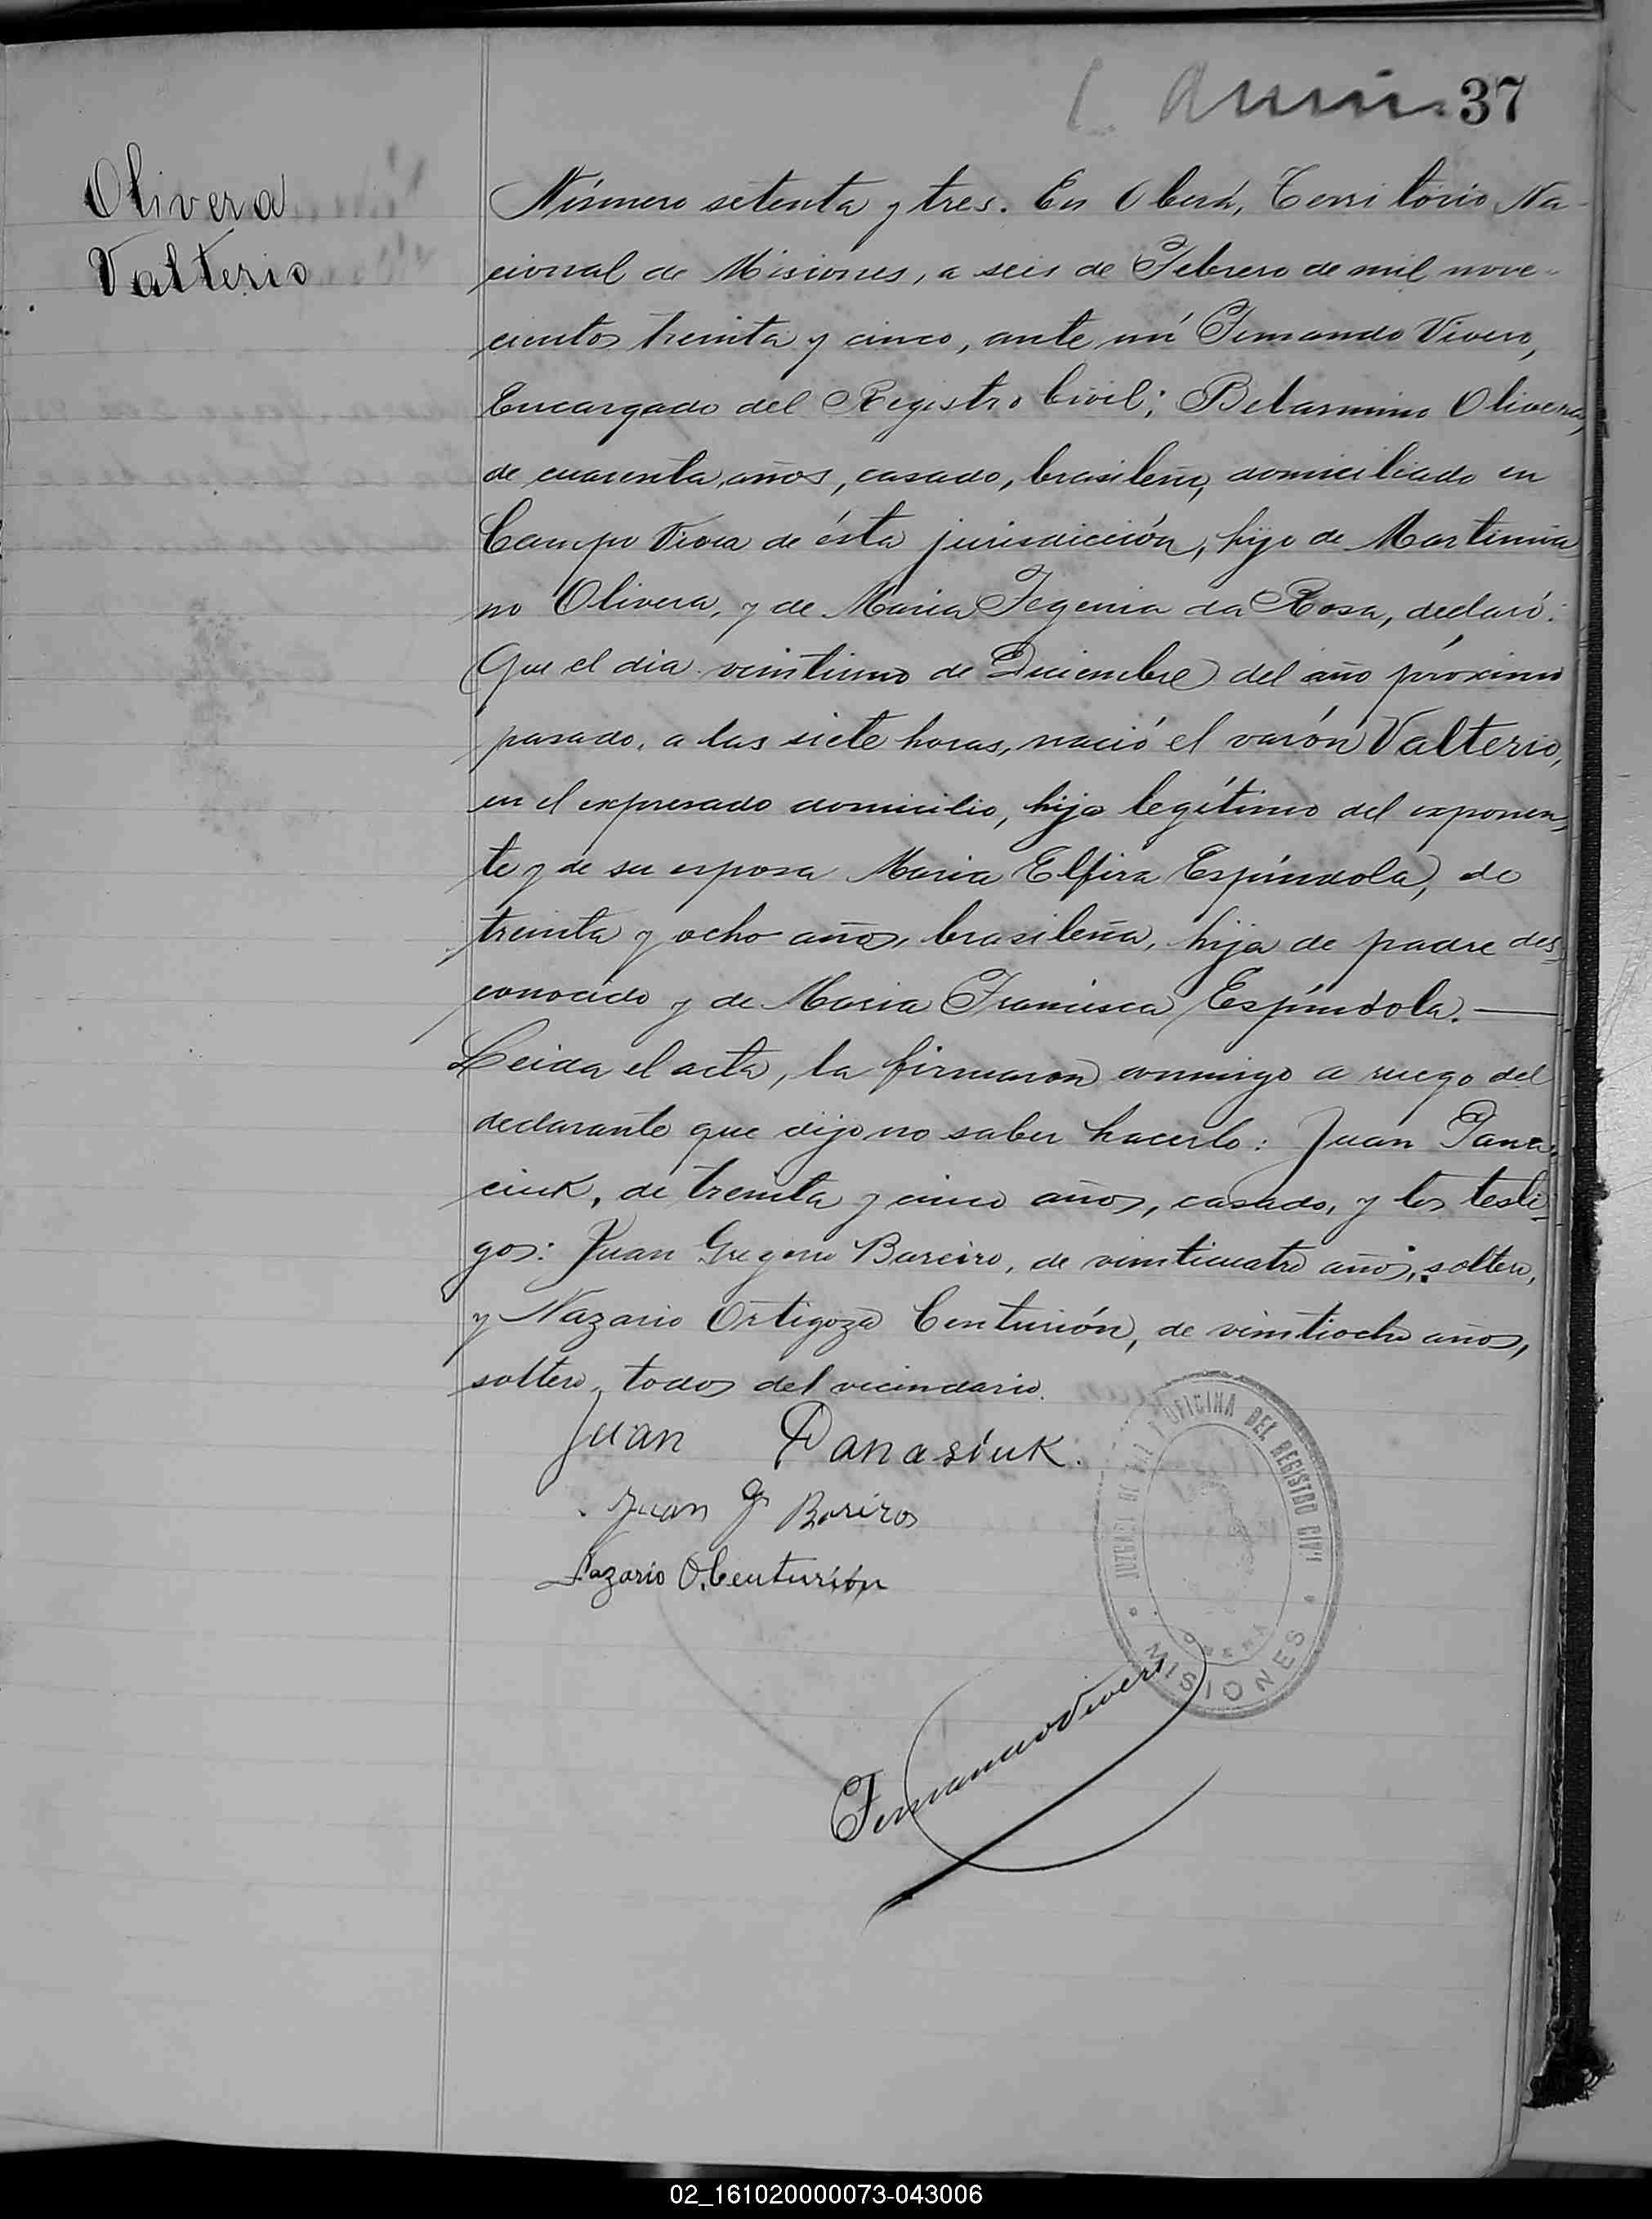 37
Olivera
Valterio
Número setenta y tres. En Oberá, Territorio Na-
cional de Misiones, a seis de Febrero de mil nove-
cientos treinta y cinco, ante mí Fernando Vivero,
Encargado del Registro Civil; Belarmino Olivera,
de cuarenta años, casado, brasileño, domiciliado en
Campo Viera de ésta jurisdicción, hijo de Martinia
no Olivera, y de Maria Fegenia da Rosa, declaró:
Que el dia veintiuno de Diciembre del año próximo
pasado, a las siete horas, nació el varón Valterio,
en el expresado domicilio, hijo legítimo del exponen-
te y de su esposa Maria Elfira Espíndola, de
treinta y ocho años, brasileña, hija de padre des-
conocido y de Maria Francisca Espíndola.
Leida el acta, la firmaron conmigo a ruego del
declarante que dijo no saber hacerlo: Juan Pana-
ciuk, de treinta y cinco años, casado, y los testi-
gos: Juan Gregorio Bareiro, de veinticuatro años, soltero,
y Nazario Ortigoza Centurión, de veintiocho años,
soltero, todos del vecindario.
Juan Panasiuk.
Juan G Bariros
Nazario O. Centurión
JUZGADO DE PAZ Y OFICINA DEL REGISTRO CIVIL
OBERÁ
MISIONES
Fernando Vivero
02_161020000073-043006